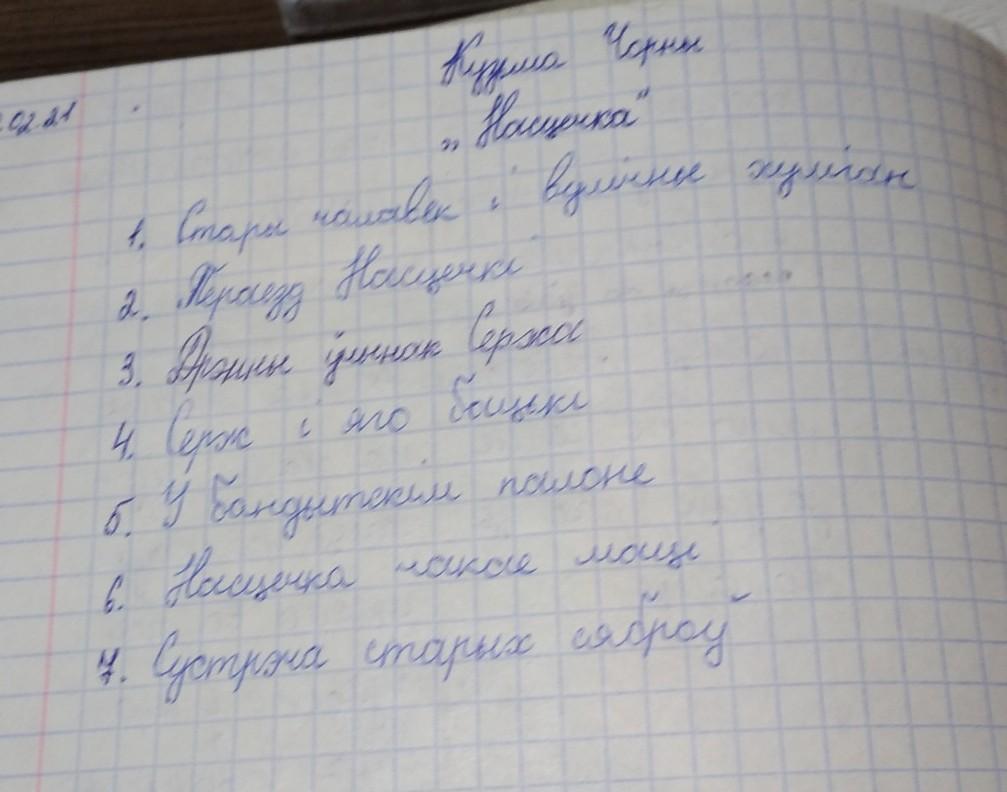 .02.21
Кузьма Чорны
„Насцечка"
1. Стары чалавек і вулічны хуліган
2. Пераезд Насцечкі
3. Дрэнны ўчынак Сержа
4. Серж і яго бацькі
5. У бандыткім палоне
6. Насцечка чакае маці
7. Сустрэча старых сяброў